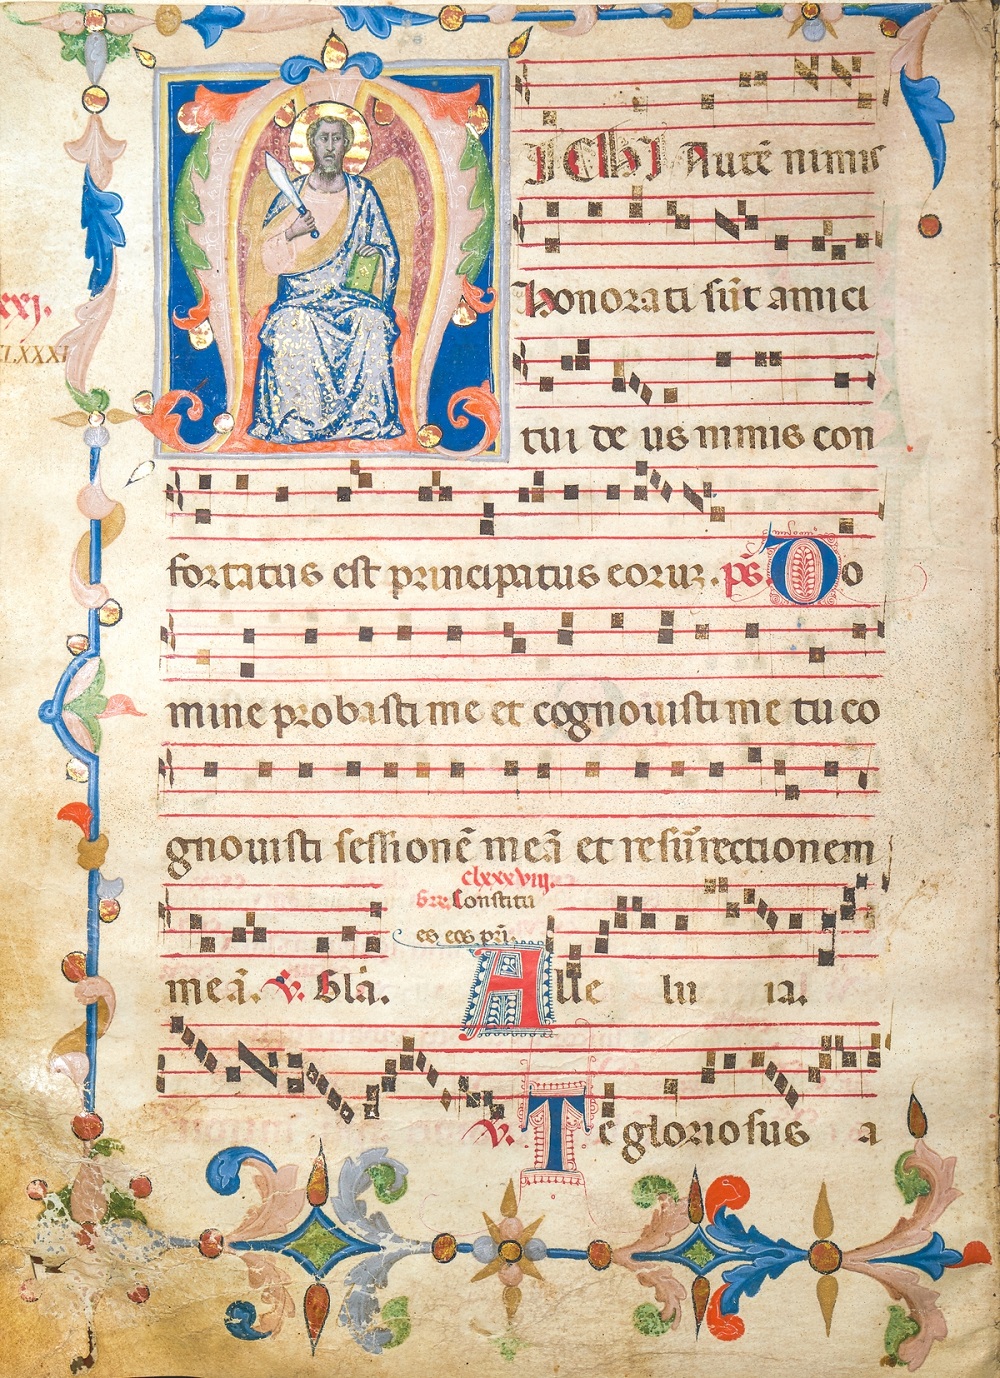 ICHI Autē nimis
honorati sūt amici
tui de us nimis con
fortatus est principatus eoruꝫ. ps̄. Do
mine probasti me et cognouisti me tu co
gnouisti sessionē meā et resūrrectionem
clxxxviij.
Constitu
es eos pri.
meā. v. Glā. Alle lu ia.
v. Te gloriosus a
xxj.